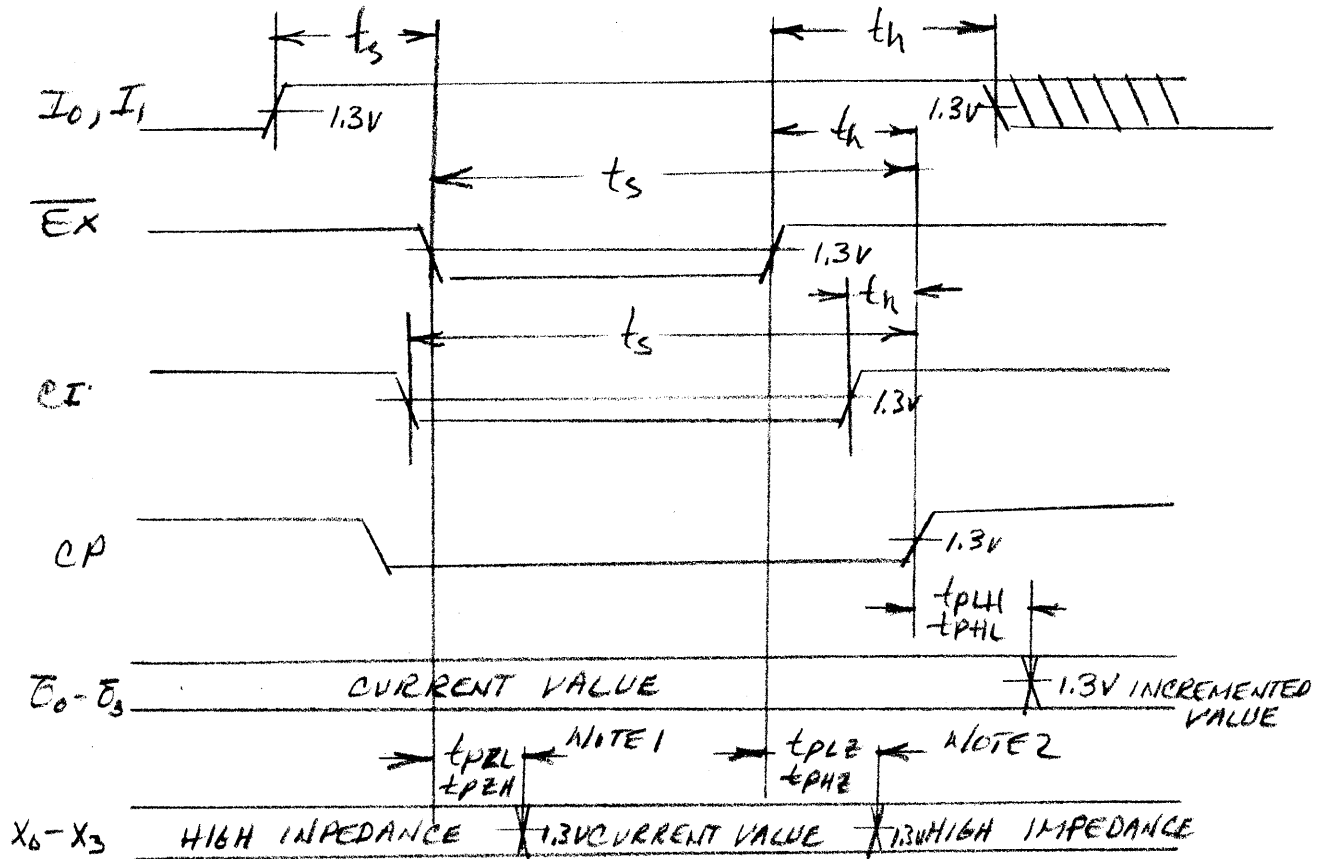 ts
th
I0, I1
1.3V
1.3V
th
ts
E̅X̅
1.3V
th
ts
CI
1.3V
CP
1.3V
tPLH
tPHL
O̅0 - O̅3
CURRENT VALUE
1.3V INCREMENTED
VALUE
tPZL
tPZH
NOTE 1
tPLZ
tPHZ
NOTE 2
X0 - X3
HIGH INPEDANCE
1.3V CURRENT VALUE
1.3V HIGH IMPEDANCE